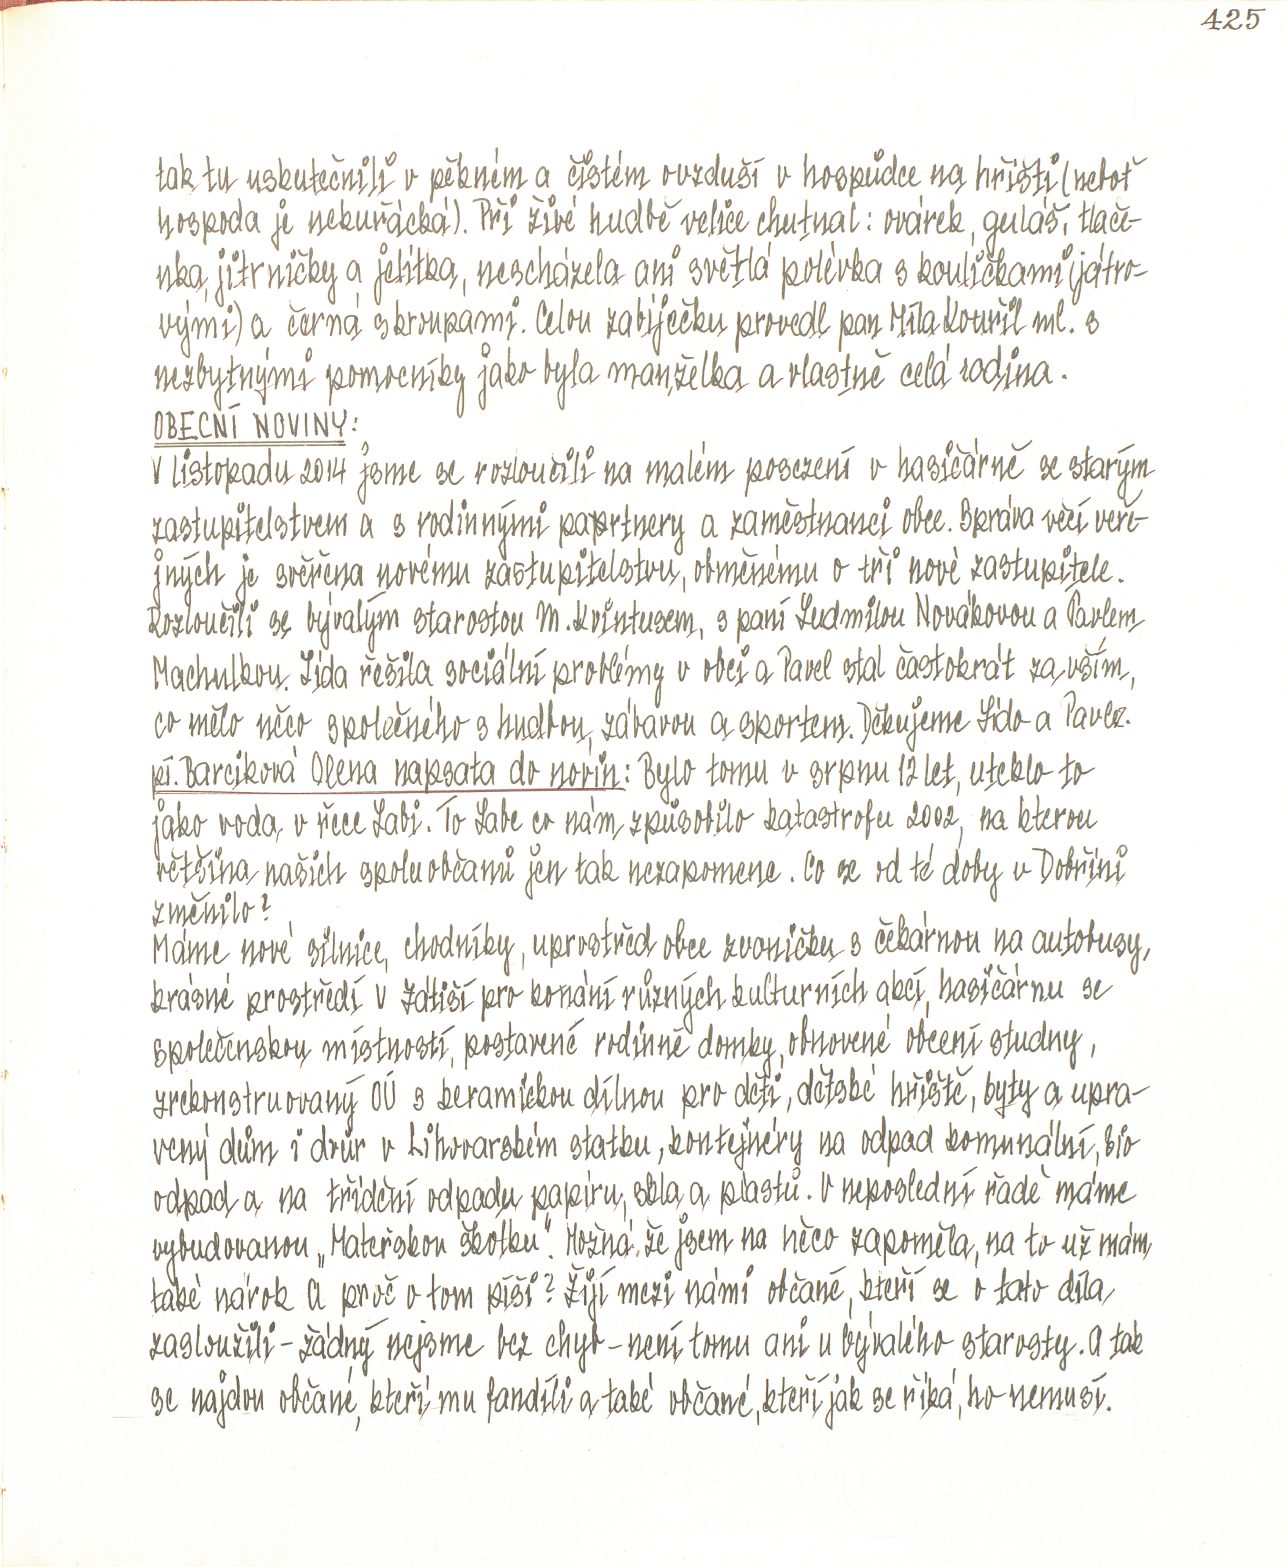 425
tak tu uskutečnili v pěkném a čistém ovzduší v hospůdce na hřišti (neboť
hospoda je nekuřácká). Při živé hudbě velice chutnal: ovárek, guláš, tlače-
nka, jitrničky a jelítka, nescházela ani světlá polévka s kouličkami (játro-
vými) a černá s kroupami. Celou zabíječku provedl pan Míla Kouřil ml. s
nezbytnými pomocníky jako byla manželka a vlastně celá rodina.
OBECNÍ NOVINY:
V listopadu 2014 jsme se rozloučili na malém posezení v hasičárně se starým
zastupitelstvem a s rodinnými paprtnery a zaměstnanci obce. Správa věcí veře-
jných je svěřena novému zastupitelstvu, obměněnému o tři nové zastupitele.
Rozloučili se bývalým starostou M. Kvintusem, s paní Ludmilou Novákovou a Pavlem
Machulkou. Lída řešila sociální problémy v obci a Pavel stál častokrát za vším,
co mělo něco společného s hudbou, zábavou a sportem. Děkujeme Lído a Pavle.
pí. Barciková Olena napsala do novin: Bylo tomu v srpnu 12 let, uteklo to
jako voda v řece Labi. To Labe co nám způsobilo katastrofu 2002, na kterou
většina našich spoluobčanů jen tak nezapomene. Co se od té doby v Dobříni
změnilo?
Máme nové silnice, chodníky, uprostřed obce zvoničku s čekárnou na autobusy,
krásné prostředí v Zátiší pro konání různých kulturních akcí, hasičárnu se
společenskou místností, postavené rodinné domky, obnovené obecní studny,
zrekonstruovaný OÚ s keramickou dílnou pro děti, dětské hřiště, byty a upra-
vený dům i dvůr v Lihovarském statku, kontejnéry na odpad komunální, bio
odpad a na třídění odpadu papíru, skla a plastů. V neposlední řadě máme
vybudovanou „Mateřskou školku". Možná že jsem na něco zapoměla, na to už mám
také nárok A proč o tom píši? Žijí mezi námi občané, kteří se o tato díla
zasloužili - žádný nejsme bez chyb - není tomu ani u bývalého starosty. A tak
se najdou občané, kteří mu fandili a také občané, kteří jak se říká, ho nemusí.